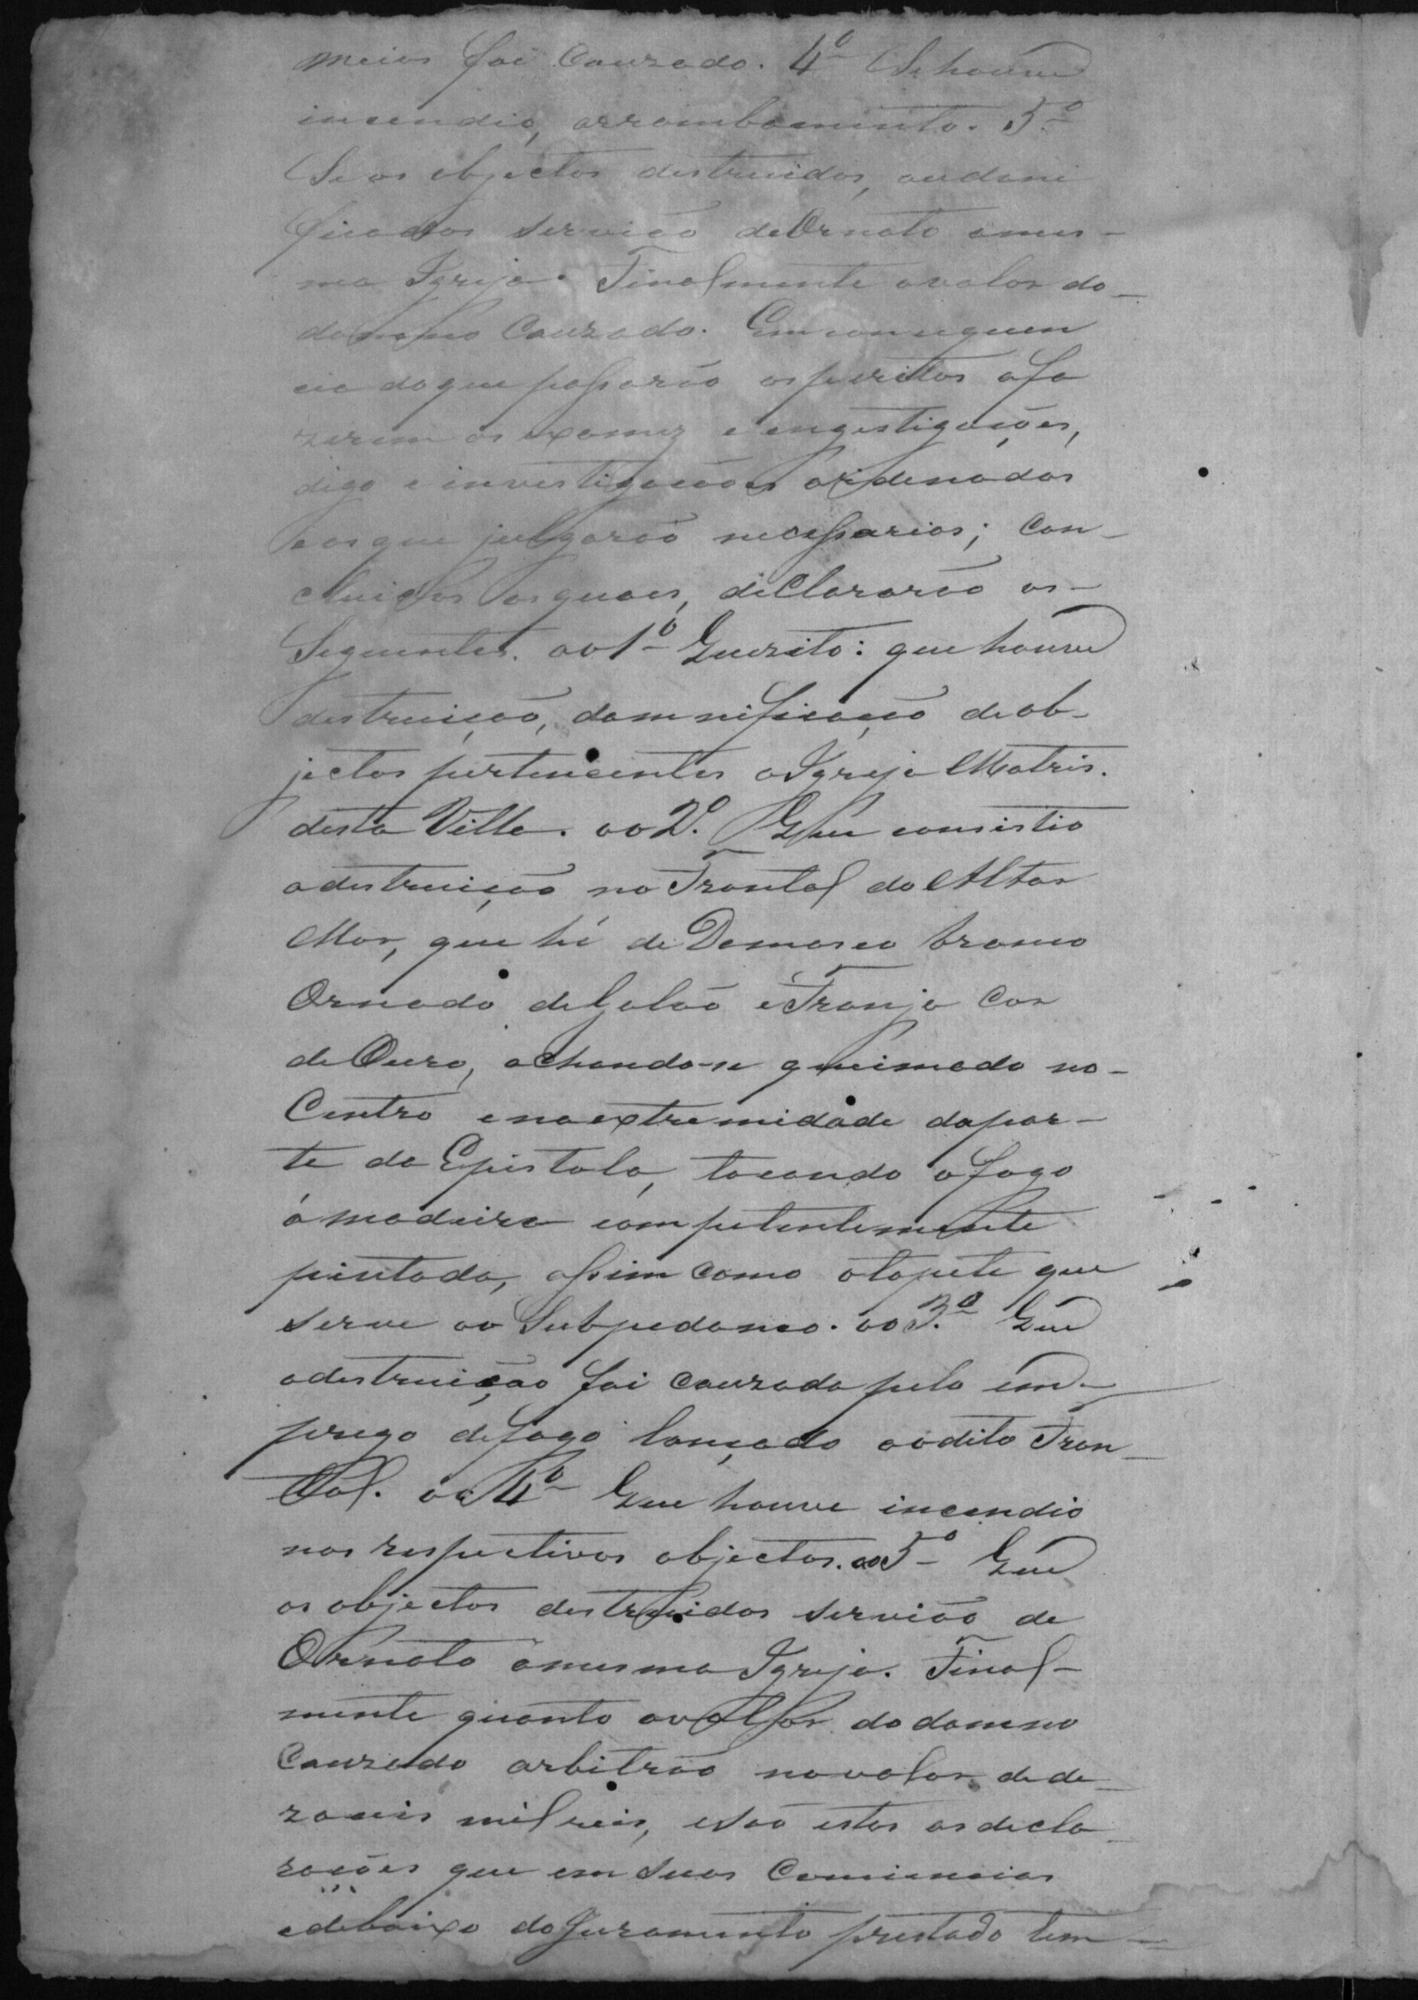 meios foi Cauzado. 4º Se houve
incendio, arrombamento. 5.º
Se os objectos destruidos, ou dani
ficados servião de Ornato a mes-
ma Igreja. Finalmente o valor do-
damno Cauzado. Em consequen
cia do que passarão os peritos a fa
zerem os exames e engestigações,
digo e investigações ordenados
e os que julgarão necessarios; Con-
cluidos os quaes, diclararão os-
Seguintes. ao 1º Quezito: que houve
destruição, damnificação de ob-
jectos pertencentes a Igreja Matris.
desta Villa. ao 2º. Que consistio
a destruição no Frontal do Altar
Mor, que hé de Damasco branco
Ornado de Galão e Franja Cor
de Ouro, achando-se queimado no-
Centro e na extremidade da par-
te da Epistola, tocando o fogo
á madeira competentemente
pintada, assim como o tapete que
serve ao Subpedaneo. ao 3.º Que
a destruição foi cauzada pelo em-
prego de fogo lançado ao dito Fron-
tal. ao 4º Que houve incendio
nos respectivos objectos. ao 5º Que
os objectos destruidos servião de
Ornato a mesma Igreja. Final-
mente quanto ao valor do damno
Cauzado arbitrão no valor de de-
zaseis mil reis, e são estas as decla-
rações que em suas Consciencias
e debaixo do Juramento prestado tem-